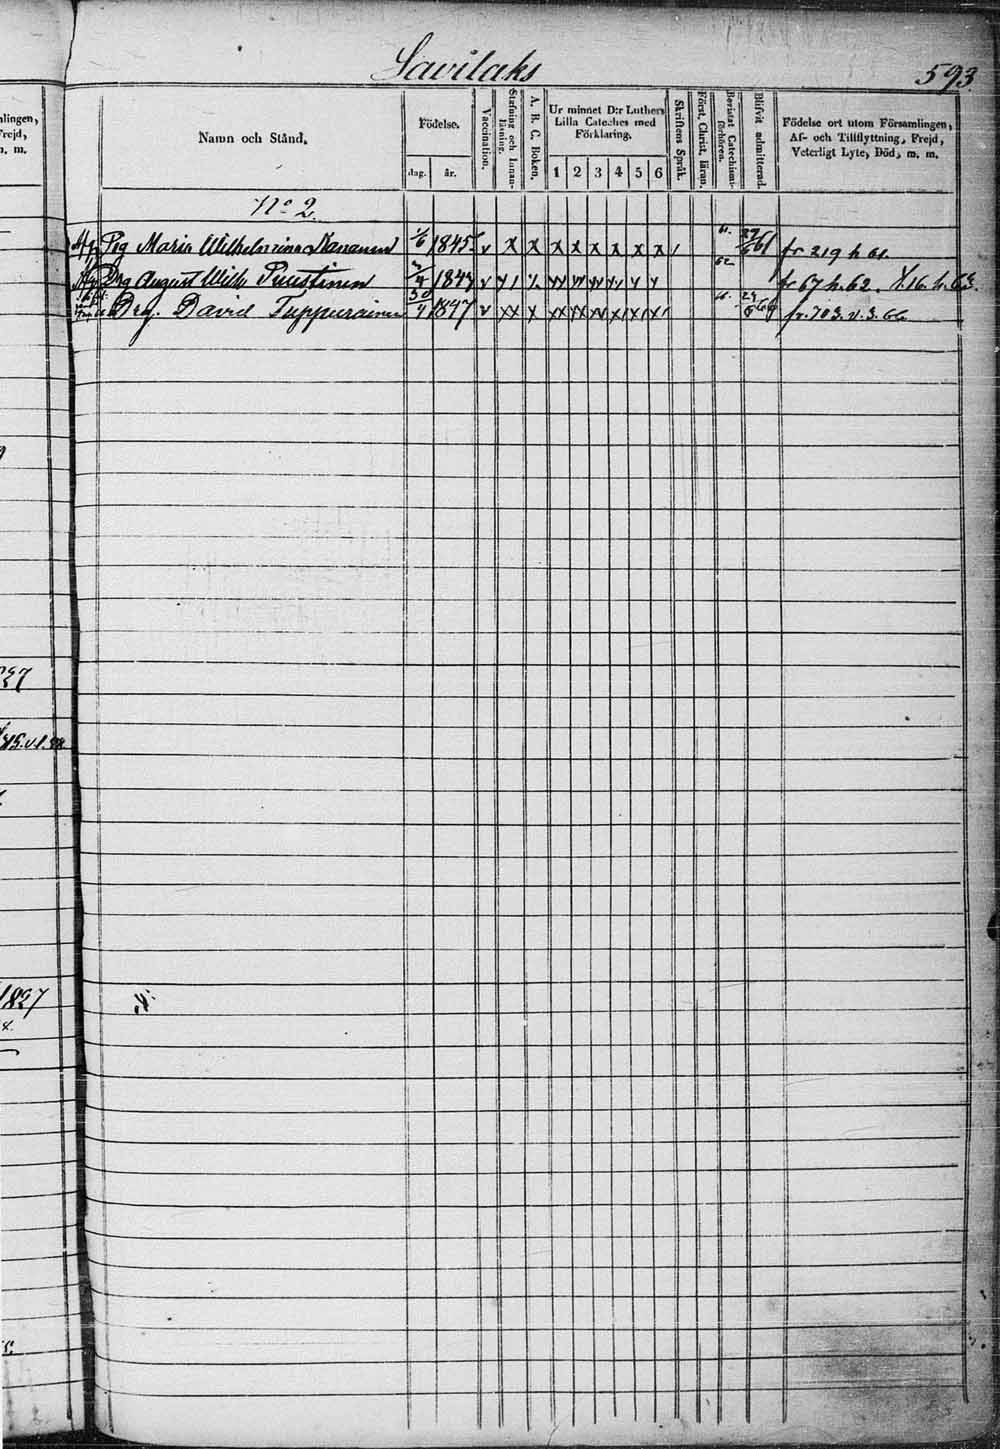 Savilaks 593.
lingen,
Frejd,
m. m.
Namn och Stånd.
Födelse.
dag. år.
Vaccination.
Stafning och Innanläsning.
A. B. C. Boken.
Ur minnet D:r Luthers Lilla Cateches med Förklaring.
1 2 3 4 5 6
Skriftens Språk.
Först. Christ. läran.
Bevistat Catechismiförhören.
Blifvit admitterad.
Födelse ort utom Församlingen,
Af- och Tillflyttning, Frejd,
Veterligt Lyte, Död, m. m.
No 2.
Pig Maria Wilhelmina 1/6 1845. v x x x x x x x x 61. 62 61 fr 219 h 61.
Drg August Wilh. 1847 v fr 67 h. 62. 16. h. 63.
Drg. David Tuppurainen 30/1 1847 v xx x 66. 66 fr. 703. v. 3. 66
1827